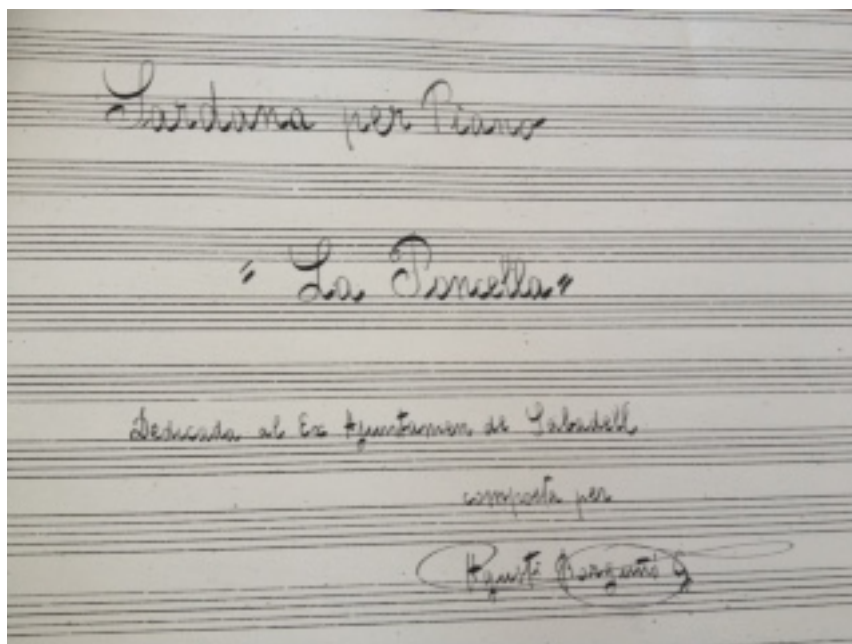 Sardana per Piano
"La Poncella"
Dedicada al Ex Ajuntamen de Sabadell
composta per
Agustí Borgunyó G